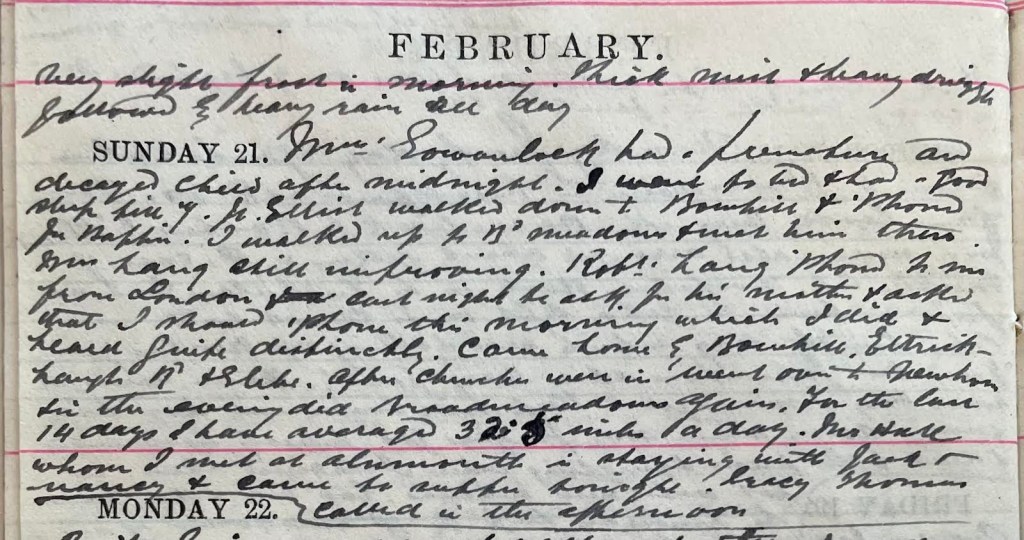 FEBRUARY.
Very slight frost in morning. Thick mist & heavy drizzle
followed by heavy rain all day
SUNDAY 21. Mrs Gowanlock had a premature and
decayed child after midnight. I went to bed & had a good
sleep till 7. Elliot walked down to Bowhill & 'Phoned
for Baffin. I walked up to Bd meadows & met him there.
Mrs Lang still improving. Robt. Lang 'Phoned to me
from London last night he ask for his mother & asked
that I should 'phone this morning which I did &
heard quite distinctly. Came home by Bowhill, Ettrick-
haugh Rd & Glebe. After churches were in went over to Newhouse
& in the evening did Broadmeadows again. For the last
14 days I have averaged 32 miles a day. Mrs
whom I met at Alnmouth is staying with Jack &
Nancy & came to supper tonight. Gracy Thomas
MONDAY 22. called in the afternoon